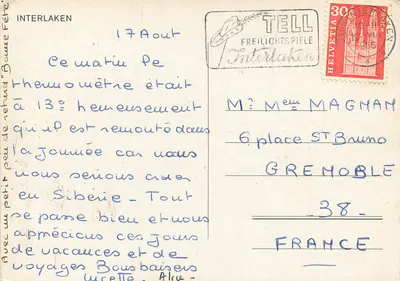 INTERLAKEN
17 Aout
Ce matin le
thermomètre était
à 13° heureusement
qu'il est remonté dans
la journée car nous
nous serions crus
en Sibérie - Tout
se passe bien et nous
apprécions ces jours
de vacances et de
voyages Bons baisers
Lucette
Avec un petit peu de retard "Bonne Fête"
TELL
FREILICHTSPIELE
Interlaken
HELVETIA
30
Mr Mme MAGNAN
6 place St Bruno
GRENOBLE
- 38 -
FRANCE